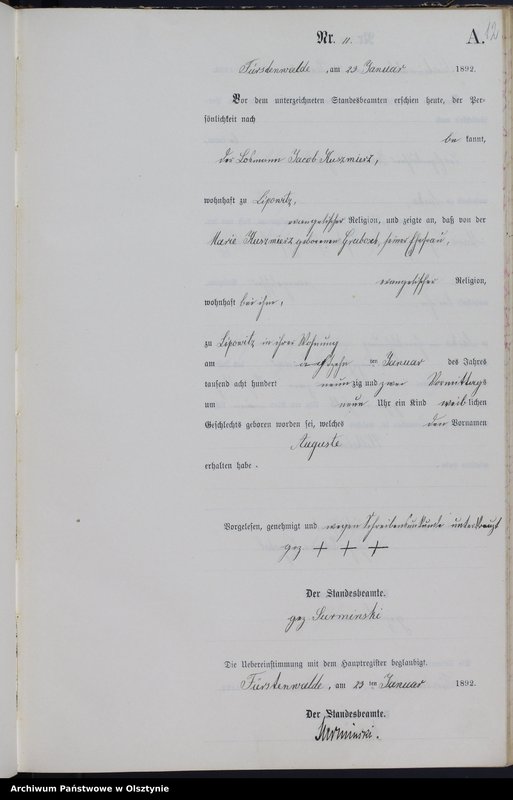 12
Nr. 11.
A.
Fürstenwalde, am 23 Januar 1892.
Vor dem unterzeichneten Standesbeamten erschien heute, der Per-
sönlichkeit nach
be kannt,
der Losmann Jacob Kuszmierz,
wohnhaft zu Lipowitz,
evangelischer Religion, und zeigte an, daß von der
Marie Kuszmierz geborenen seiner Ehefrau,
evangelischer Religion,
wohnhaft bei ihm,
zu Lipowitz in ihrer Wohnung
am ten Januar des Jahres
tausend acht hundert neun zig und zwei Vormittags
um neun Uhr ein Kind weib lichen
Geschlechts geboren worden sei, welches den Vornamen
Auguste
erhalten habe.
Vorgelesen, genehmigt und wegen Schreibensunkunde unterkreuzt
gez + + +
Der Standesbeamte.
gez Surminski
Die Uebereinstimmung mit dem Hauptregister beglaubigt.
Fürstenwalde, am 23 ten Januar 1892.
Der Standesbeamte.
Surminski.
Archiwum Państwowe w Olsztynie